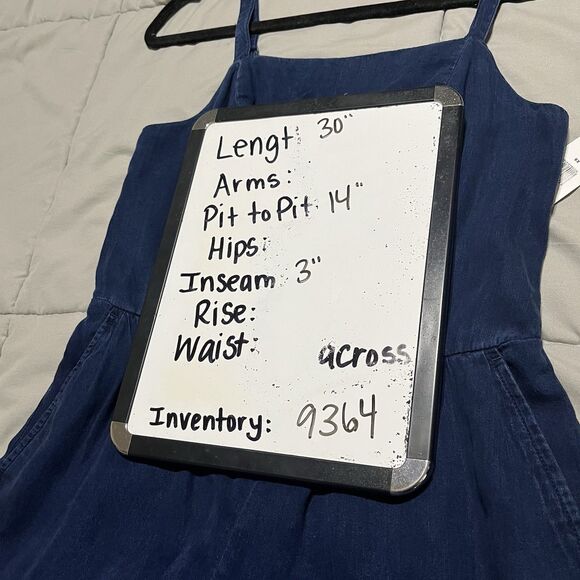 Lengt 30"
Arms:
Pit to Pit 14"
Hips:
Inseam 3"
Rise:
Waist: across
Inventory: 9364